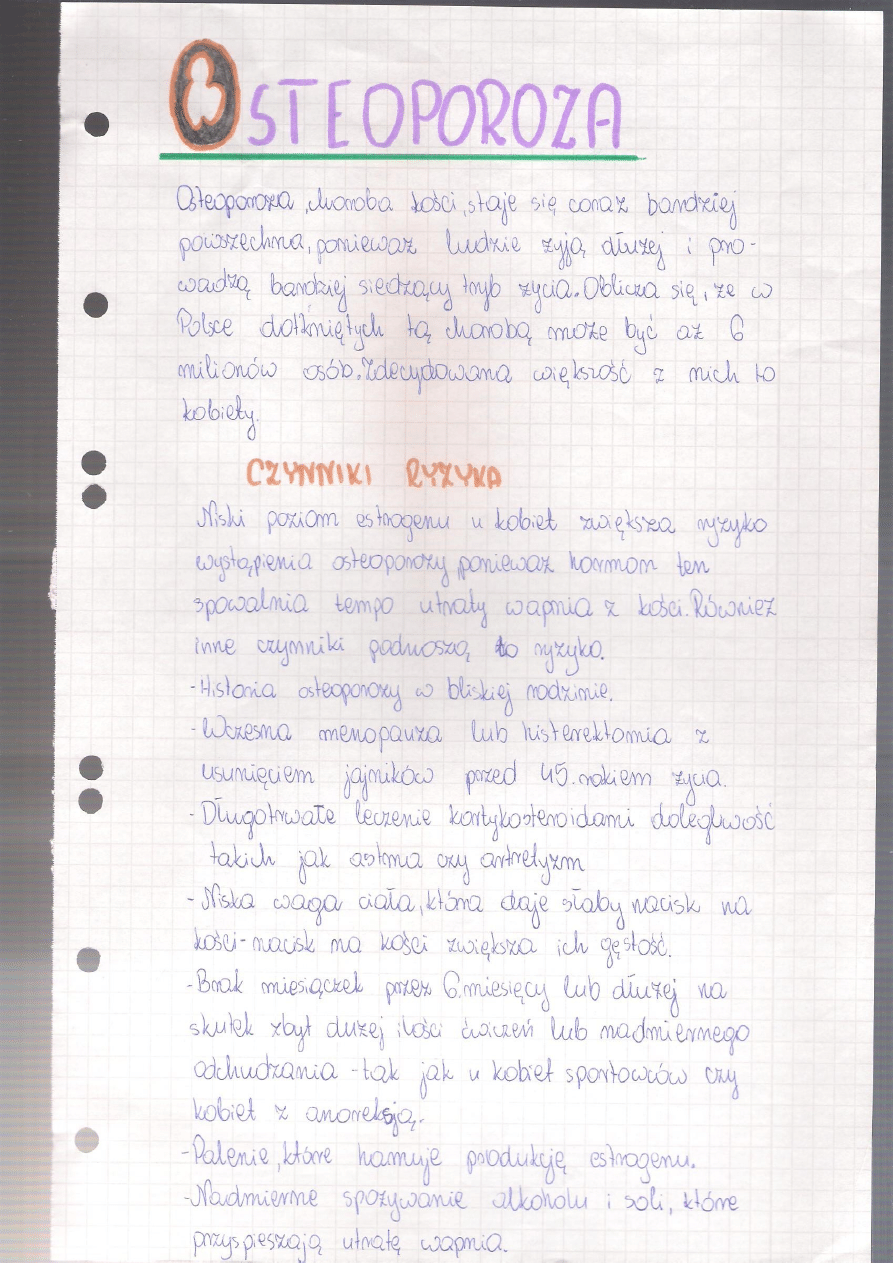 OSTEOPOROZA
Osteoporoza, choroba kości, staje się coraz bardziej
powszechna, ponieważ ludzie żyją dłużej i pro-
wadzą bardziej siedzący tryb życia. Oblicza się, że w
Polsce dotkniętych tą chorobą może być aż 6
milionów osób. Zdecydowana większość z nich to
kobiety.
CZYNNIKI RYZYKA
Niski poziom estrogenu u kobiet zwiększa ryzyko
wystąpienia osteoporozy ponieważ hormon ten
spowalnia tempo utraty wapnia z kości. Również
inne czynniki podnoszą to ryzyko.
-Historia osteoporozy w bliskiej rodzinie.
-Wczesna menopauza lub histerektomia z
usunięciem jajników przed 45. rokiem życia.
-Długotrwałe leczenie kortykosteroidami dolegliwość
takich jak astma czy artretyzm
-Niska waga ciała, która daje słaby nacisk na
kości-nacisk na kości zwiększa ich gęstość.
-Brak miesiączek przez 6.miesięcy lub dłużej na
skutek zbyt dużej ilości ćwiczeń lub nadmiernego
odchudzania -tak jak u kobiet sportowców czy
kobiet z anoreksją.
-Palenie, które hamuje produkcję estrogenu.
-Nadmierne spożywanie alkoholu i soli, które
przyspieszają utratę wapnia.